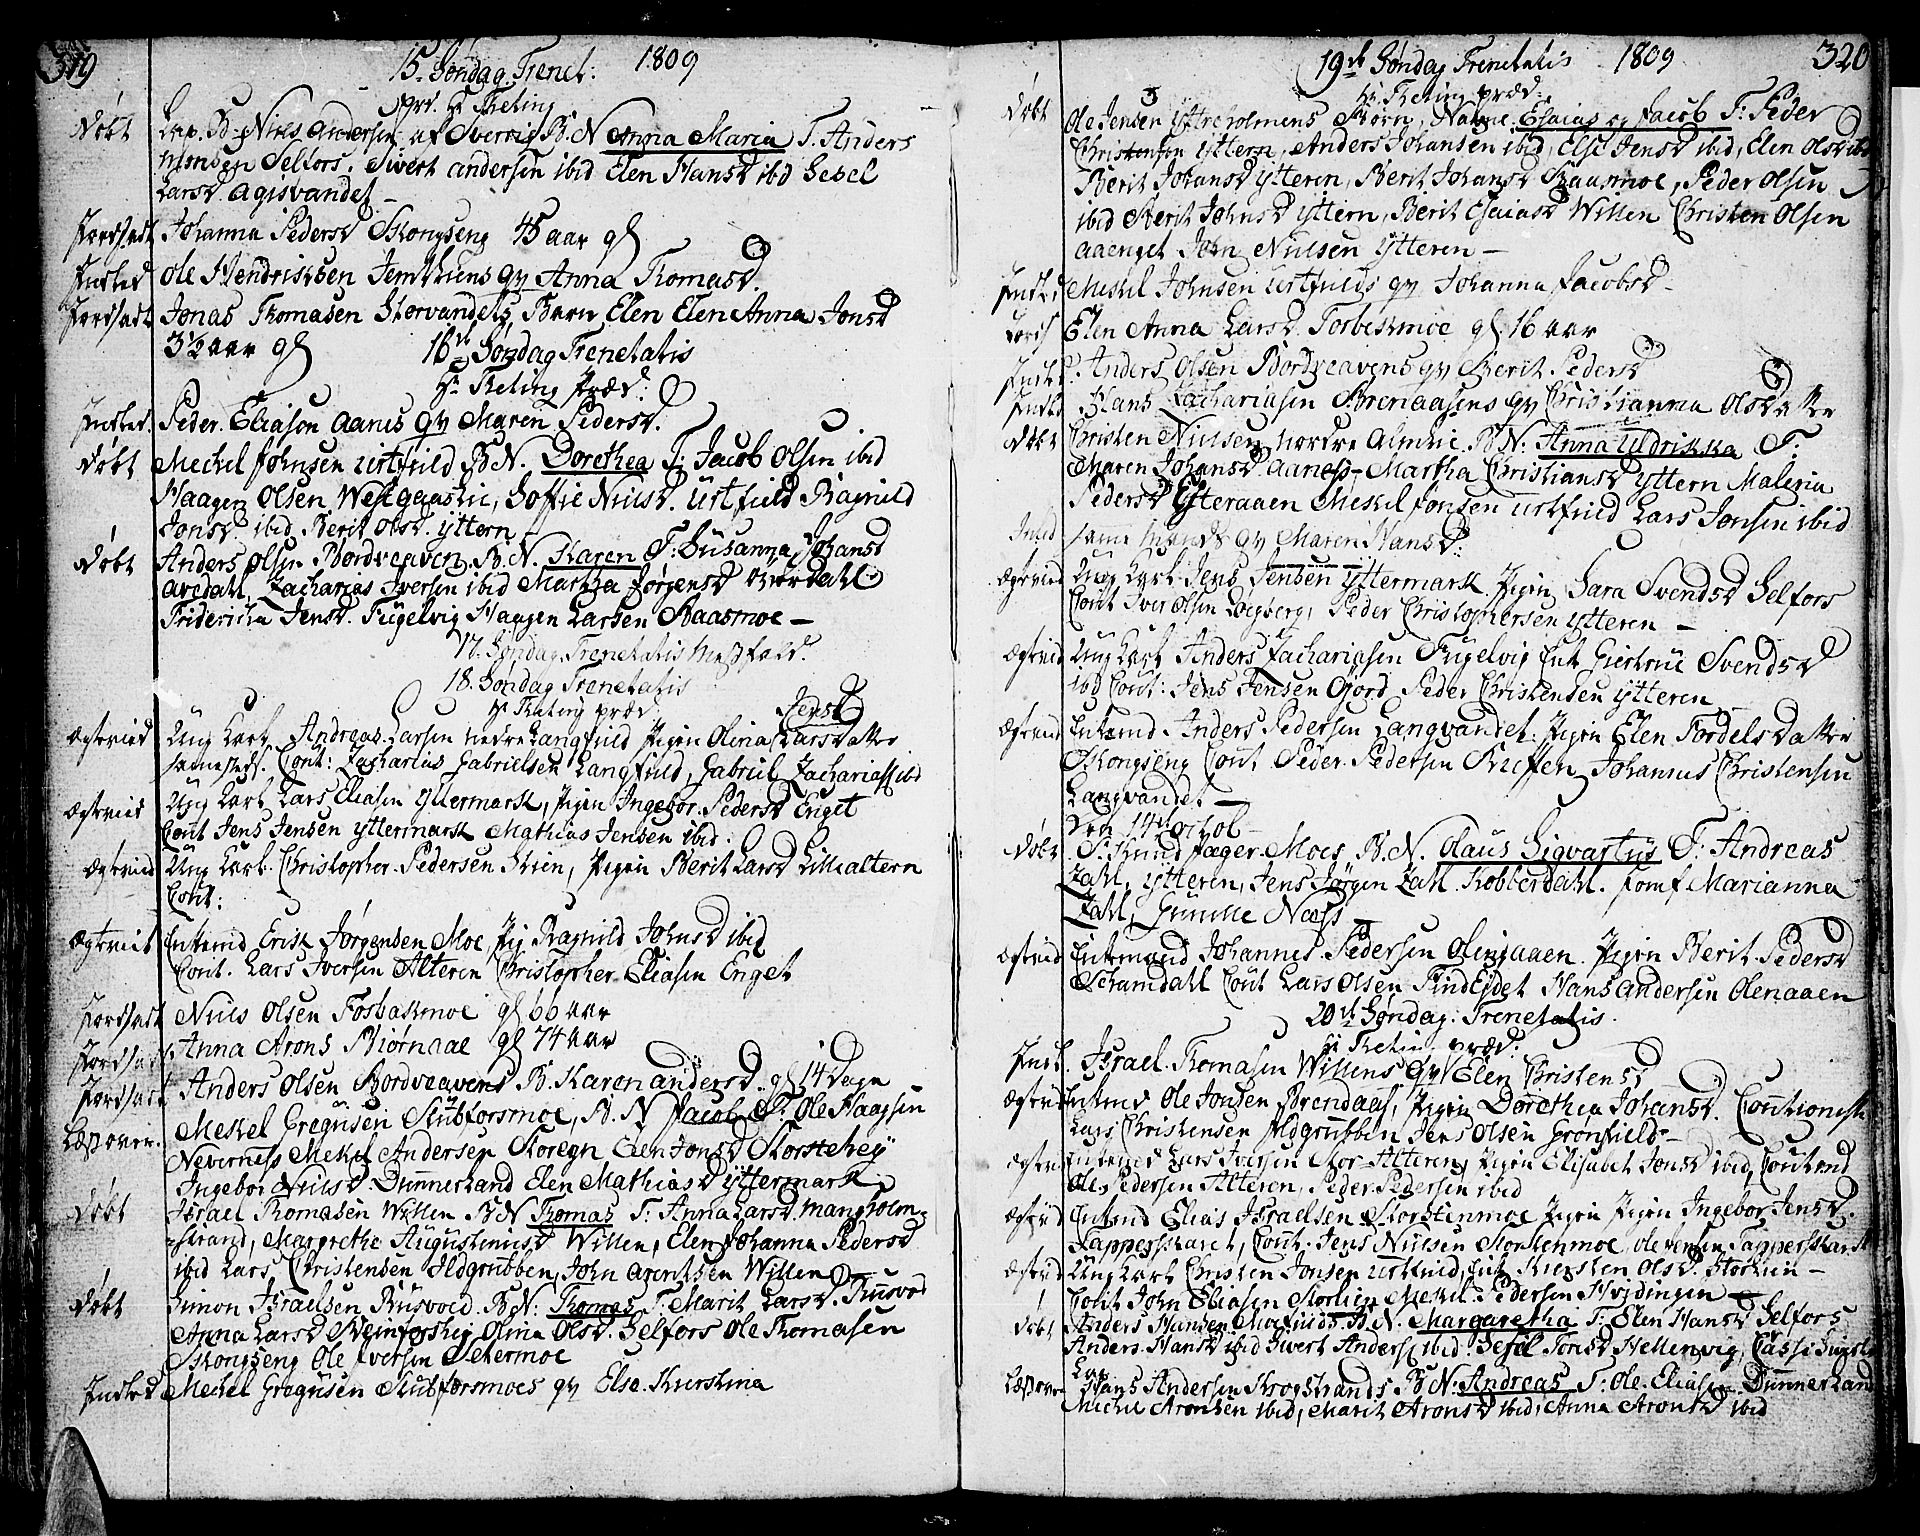 319
15. Søndag Trenet: 1809
Hr. Theting
Døbt Lap. B: Niels Andersen af Sverrig B. N. Anna Maria F. Anders
Monsen Selfors, Sivert Andersen ibid Elen Hansd ibd Sebel
Larsd Agisvandet –
Jordfæst Johanna Pedersd Skongseng 45 aar gl
Indled Ole Hendrichsen Jemthens qv Anna Thomasd.
Jordfæst Jonas Thomasen Storvandets Barn Elen Elen Anna Jonsd
3½ aar gl 16de Søndag Trenetatis
Hr. Theting Præd:
Indled Peder Eliason Aanes qv Maren Pedersd.
Døbt Meckel Johnsen Urtfield B. N. Dorethea F: Jacob Olsen ibid
Haagen Olsen Westgaaslie, Soffie Nielsd. Urtfield Ragnild
Jonsd. ibid. Berit Olsd. Yttern –
Døbt Anders Olsen Bordveaven B. N. Karen F: Susanna Johansd
Avedahl, Zacharias Iversen ibid Martha Jørgensd Overdahl
Fridericha Jensd. Fugelvig Haagen Larsen Baasmoe –
17. Søndag Trenetatis Messfald.
18. Søndag Trenetatis
Hr Theting præd
Jensd
Ægtevied Ung Karl Andreas Larsen nedre Langfield Pigen Olina Larsdatter
sammesteds. Cont: Zacharias Gabrielsen Langfield, Gabriel Zachariass ibd
Ægtevied Ung Karl Lars Eliasen Yttermark, Pigen Ingebor Pedersd Enget
Cout Jens Jensen Yttermark Mathias Jensen ibid.
Ægtevied Ung Karl Christopher Pedersen Skien, Pigen Berit Larsd Lillealtern
Cout:
Ægteviet Enkemd Erik Jørgensen Moe Pig Ragnild Johnsd ibid
Cout. Lars Iversen Alteren Christopher Eliasen Enget
Jordfæst Niels Olsen Fosbakmoe gl 66 aar
Jordfæst Anna Arons Biørnaae gl 74 aar
Jordfæst Anders Olsen Bordveavens B. Karen Andersd. gl 14 Dage –
Læst over. Meckel Gregusen Stubforsmoe, B. N Jacob F. Ole Haagsen
Neverness Mekel Andersen Storegn Elen Jonsd Storstehey
Ingebor Nielsd. Dunnerland Elen Mathiasd Yttermark
Døbt Israel Thomasen Willen B N Thomas F: Anna Larsd. Mangholm
strand, Margrethe Augustinusd Willen, Elen Johanna Pedersd
ibid Lars Christensen Ildgrubben, John Arentsen Willen
Døbt Simon Israelsen Rusvoed. B. N: Thomas F: Marit Larsd. Rusvod
Anna Larsd Steinforshei Olina Olsd. Selfors Ole Thomasen
Skongseng Ole Iversen Setermoe
Indled Meckel Gregusen Stubforsmoes qv Else Kierstina
19de Søndag Trenetatis 1809 320
Hr Theting præd:
Døbt Ole Jensen Ytreholmens Børn, Nafne Esaias og Jacob F: Peder
Christensen Yttern, Anders Johansen ibid, Else Jensd ibid, Elen Olsd ibd
Berit Johansd Ytteren, Berit Johansd Baasmoe, Peder Olsen
ibid Berit Johnsd Yttern, Berit Esaiasd Willen Christen Olsen
Aaenget John Nielsen Ytteren –
Indled Meckel Johnsen Urtfields qv Johanna Jacobsd –
Elen Anna Larsd. Forbesmoe gl 16 aar
Indled Anders Olsen Bordveavens qv Berit Pedersd
Indled Hans Zachariasen Brenaasens qv Christianna Olsdatter
Døbt Christen Nielsen nordre Almlie B. N: Anna Uldrikka F:
Maren Johansd Aaness – Martha Christiansd Yttern Maleria
Pedersd Ytteraaen Meckel Jonsen Urtfield Lars Jonsen ibid
Indled samme Mands qv Maren Hansd:
Ægtevied Ung Karl Jens Jensen Yttermark Pigen Sara Svendsd Selfors
Cout Iver Olsen Løgberg, Peder Christophersen Ytteren –
Ægtevied Ung Karl Anders Zachariasen Fugelvig Enk Giertrue Svendsd
ibd Cout: Jens Jensen Gjord Peder Christensen Ytteren
Ægtevied Enkemd Anders Pedersen Langvandet: Pigen Elen Fordelsdatter
Skongseng Cout Peder Pedersen Kieffen Johannes Christensen
Langvandet –
Den 14de Octob
Døbt S. Knud Jæger Moes B. N. Olaus Sigvartus F: Andreas
Zahl, Ytteren, Jens Jørgen Zahl Kobberdahl. Jomf Marianna
Zahl, Gunille Næss
Ægtevied Enkemand Johannes Pedersen Olenaaen Pigen Berit Pedersd
Schamdahl Cout Lars Olsen Findeydet Hans Andersen Olenaaen
20de Søndag: Trenetatis.
Hr Thetin præd:
Indl. Israel Thomasen Willens qv Elen Christensd
Ægtevied Enkemd Ole Jonsen Brendaas, Pigen Dorethea Johansd. Coutionist
Lars Christensen Ildgrubben Jens Olsen Grønfield –
Ægtevi Enkemd Lars Iversen Stor Alteren, Pigen Elisabet Jonsd ibid, Cout end
Ole Pedersen Alteren, Peder Pedersen ibid
Ægtevied Enkemd Elias Israelsen Storstenmoe Pigen Pigen Ingebor Jensd.
Tapperskaret, Cout. Jens Nielsen Storstenmoe, Ole Jensen Tapperskaret
Ægtevied Ung Karl Christen Jonsen Urtfield, Enk Kiersten Olsd. Storlien –
Cout John Eliasen Storlien Meckel Pedersen Hvidingen –
Døbt Anders Hansen Moefields B. N. Margaretha F: Elen Hansd Selfors
Anders Hansd ibid Sivert Anders ibid Sefel Tonsd Hellenvig,
Lap
Læst over Hans Andersen Krogstrands B. N: Andreas F: Ole Eliasen Dunnerland
Michel Aronsen ibid, Marit Aronsd ibid, Anna Aronsd ibid